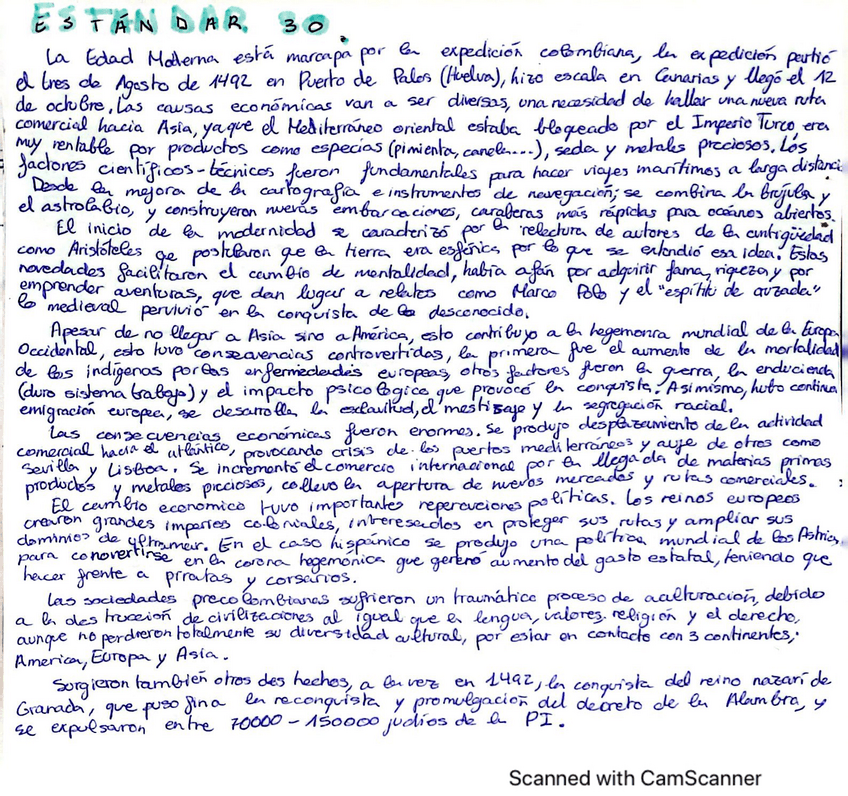 ESTÁNDAR 30.
La Edad Moderna está marcapa por la expedición colombiana, la expedición partió
el tres de Agosto de 1492 en Puerto de Palos (Huelva), hizo escala en Canarias y llegó el 12
de octubre. Las causas económicas van a ser diversas, una necesidad de hallar una nueva ruta
comercial hacia Asia, ya que el Mediterráneo oriental estaba bloqueado por el Imperio Turco, era
muy rentable por productos como especias (pimienta, canela...), seda y metales preciosos. Los
factores científicos-técnicos fueron fundamentales para hacer viajes marítimos a larga distancia.
Desde la mejora de la cartografía e instrumentos de navegación; se combina la brújula y
el astrolabio, y construyeron nuevas embarcaciones, carabelas más rápidas para océanos abiertos.
El inicio de la modernidad se caracterizó por la relectura de autores de la antigüedad
como Aristóteles qe postularon qe la tierra era esférica por lo que se extendió esa idea. Estas
novedades facilitaron el cambio de mentalidad, había afán por adquirir fama, riqeza y por
emprender aventuras, que dan lugar a relatos como Marco Polo y el "espítiti de cruzada"
lo medieval pervivió en la conquista de lo desconocido.
Apesar de no llegar a Asia sino a América, esto contribuyo a la hegemonía mundial de la Europa
Occidental, esto tuvo consecuencias controvertidas, la primera fue el aumento de la mortalidad
de los indígenas por las enfermedades europeas, otros factores fueron la guerra, la
(duro sistema trabajo) y el impacto psicológico que provocó la conquista. Asimismo, hubo continua
emigración europea, se desarrolla la esclavitud, el mestizaje y la segregación racial.
Las consecuencias económicas fueron enormes. Se produjo desplazamiento de la actividad
comercial hacia el atlántico, provocando crisis de los puertos mediterráneos y auje de otros como
Sevilla y Lisboa. Se incrementó el comercio internacional por la llegada de materias primas
productos y metales preciosos, collevo la apertura de nuevos mercados y rutas comerciales.
El cambio economico tuvo importantes repercuciones políticas. Los reinos europeos
crearon grandes imperios coloniales, interesados en proteger sus rutas y ampliar sus
dominios de ultramar. En el caso hispánico se produjo una política mundial de los Astrias,
para conovertirse en la corona hegemónica que generó aumento del gasto estatal, teniendo que
hacer frente a piratas y corsarios.
Las sociedades precolombianas sufrieron un traumático proceso de aculturación, debido
a la destrucción de civilizaciones al igual que la lengua, valores, religión y el derecho,
aunque no perdieron totalmente su diversidad cultural, por estar en contacto con 3 continentes;
America, Europa y Asia.
Surgieron también otros dos hechos, a la vez en 1492, la conquista del reino nazarí de
Granada, que puso fin a la reconquista y promulgación del decreto de la Alambra, y
se expulsaron entre 70000 - 150000 judíos de la PI.
Scanned with CamScanner